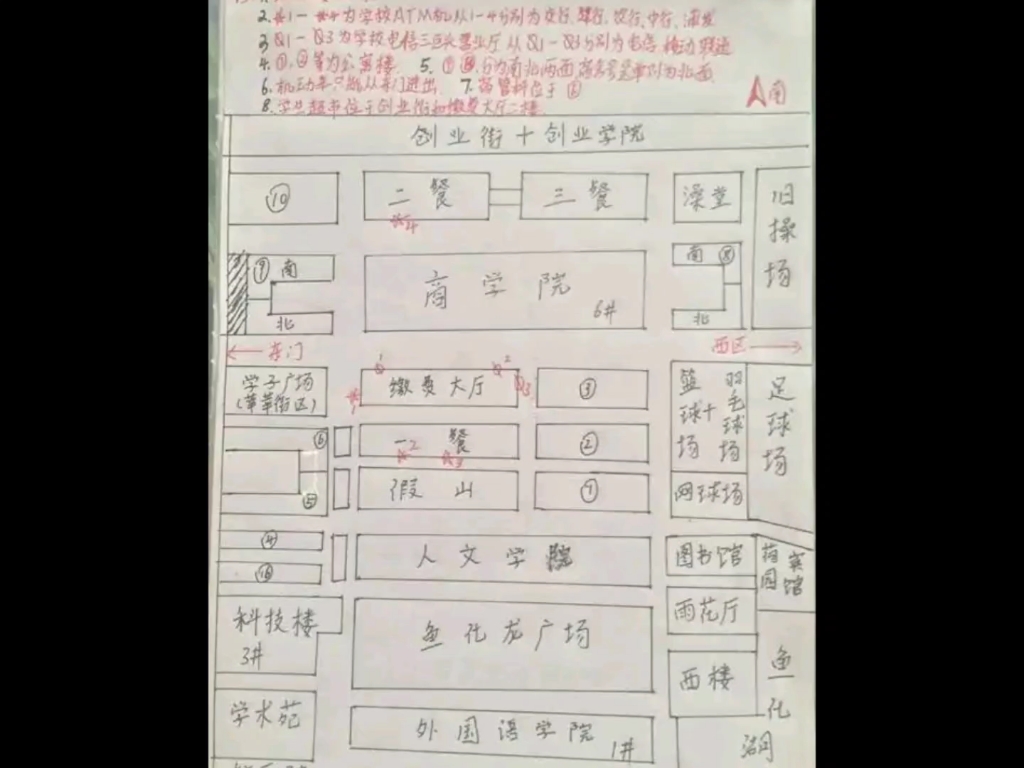 2. *1-*4为学校ATM机从1-4分别为
3. Q1-Q3为学校电信三巨头营业厅从Q1-Q3分别为电信 移动 联通
4. ①,②等为公寓楼. 5.
6. 机动车只能从东门进出 7. 位于
8. 学生超市位于创业街和缴费大厅二楼
南
创业街+创业学院
⑩
二餐
三餐
澡堂
旧操场
*4
⑨ 南
商学院
6#
南 ⑧
北
北
← 东门
西区 →
学子广场
(莘莘街区)
*1
Q1
缴费大厅
Q2
Q3
③
篮球+
场
羽毛球场
足球场
⑥
一餐
*2
*3
②
⑤
假山
①
网球场
④
人文学院
图书馆
宾馆
⑯
科技楼
3#
鱼化龙广场
雨花厅
西楼
鱼化
湖
学术苑
外国语学院
1#